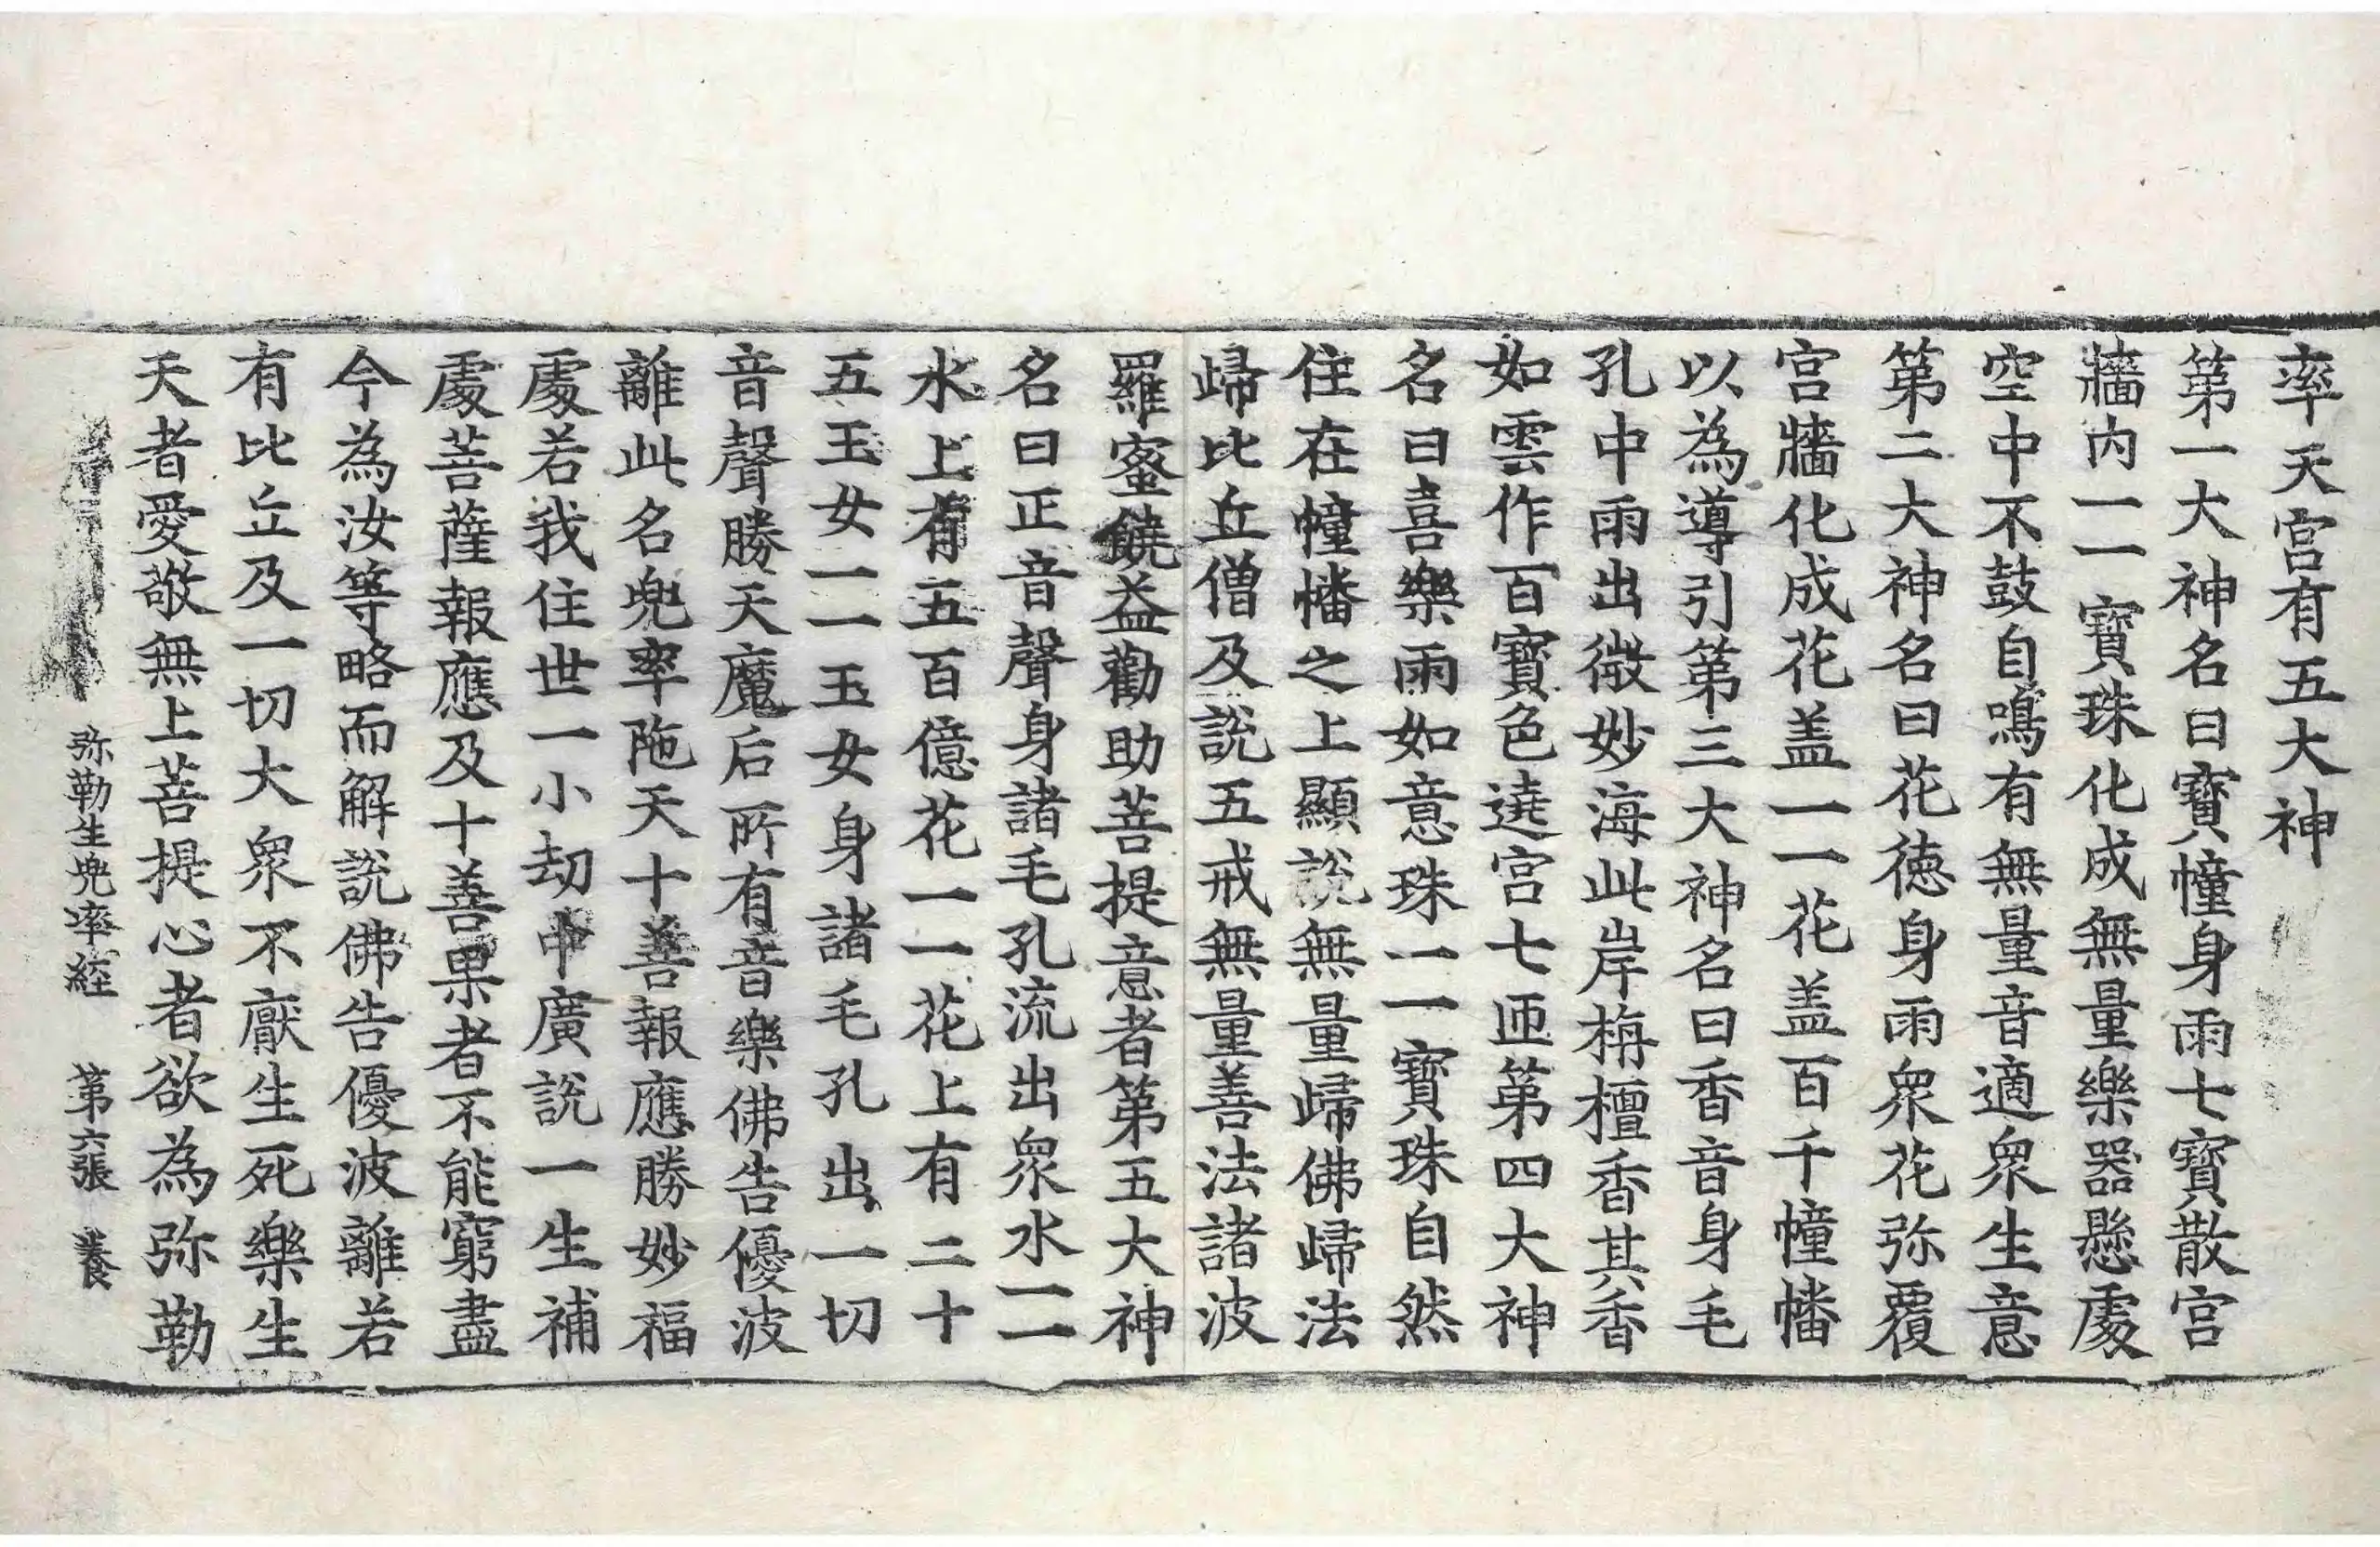 率天宮有五大神
第一大神名曰寶幢身雨七寶散宮
牆内一一寶珠化成無量樂器懸處
空中不鼓自鳴有無量音適衆生意
第二大神名曰花德身雨衆花弥覆
宮牆化成花盖一一花盖百千幢幡
以為導引第三大神名曰香音身毛
孔中雨出微妙海此岸栴檀香其香
如雲作百寶色遶宮七匝第四大神
名曰喜樂雨如意珠一一寶珠自然
住在幢幡之上顯說無量歸佛歸法
歸比丘僧及說五戒無量善法諸波
羅蜜饒益勸助菩提意者第五大神
名曰正音聲身諸毛孔流出衆水一一
水上有五百億花一一花上有二十
五玉女一一玉女身諸毛孔出一切
音聲勝天魔后所有音樂佛告優波
離此名兜率陁天十善報應勝妙福
處若我住世一小劫中廣說一生補
處菩薩報應及十善果者不能窮盡
今為汝等略而解說佛告優波離若
有比丘及一切大衆不厭生死樂生
天者愛敬無上菩提心者欲為弥勒
弥勒生兜率経 第六張 養